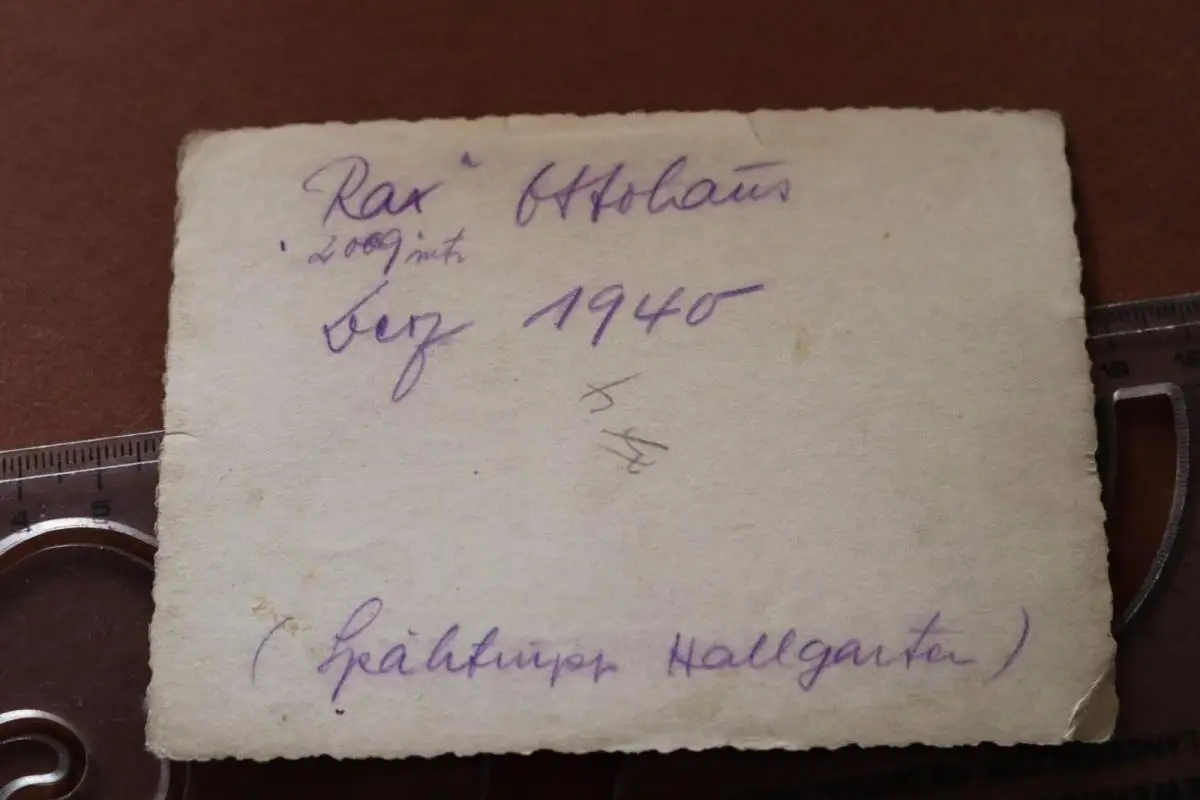 "Rax" Ottohaus
2009 mtr
Dez 1940
(Spähtrupp Hallgarten)
4 5